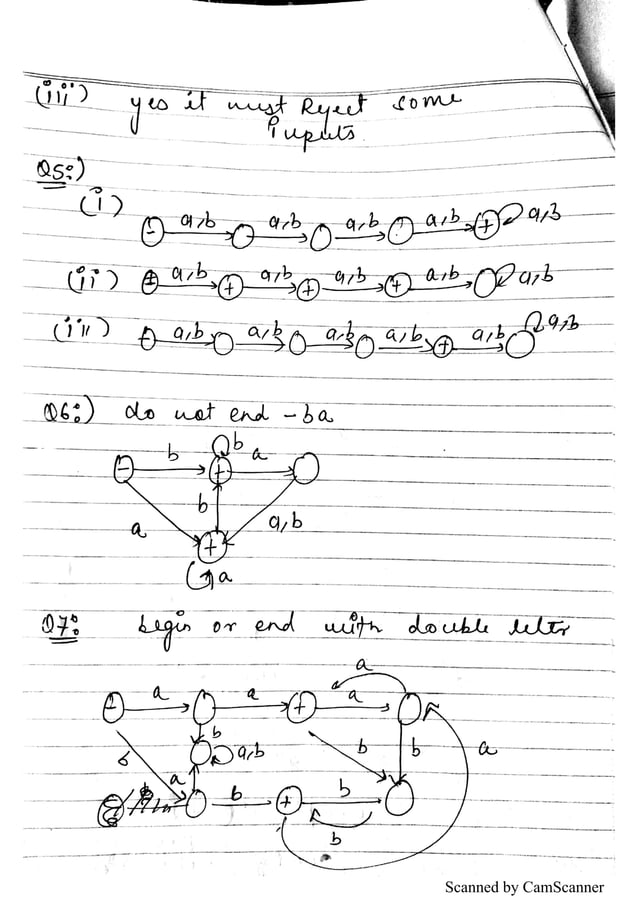 (iii) yes it must Reject some
inputs
Q5:)
(i)
- a,b a,b a,b a,b + a,b
(ii) ± a,b + a,b + a,b + a,b a,b
(iii) - a,b a,b a,b a,b + a,b a,b
Q6:) do not end -ba
b
- b + a
b
a + a,b
a
Q7: begin or end with double letter
a
- a a + a
b
b a,b b b a
a
b + b
b
Scanned by CamScanner